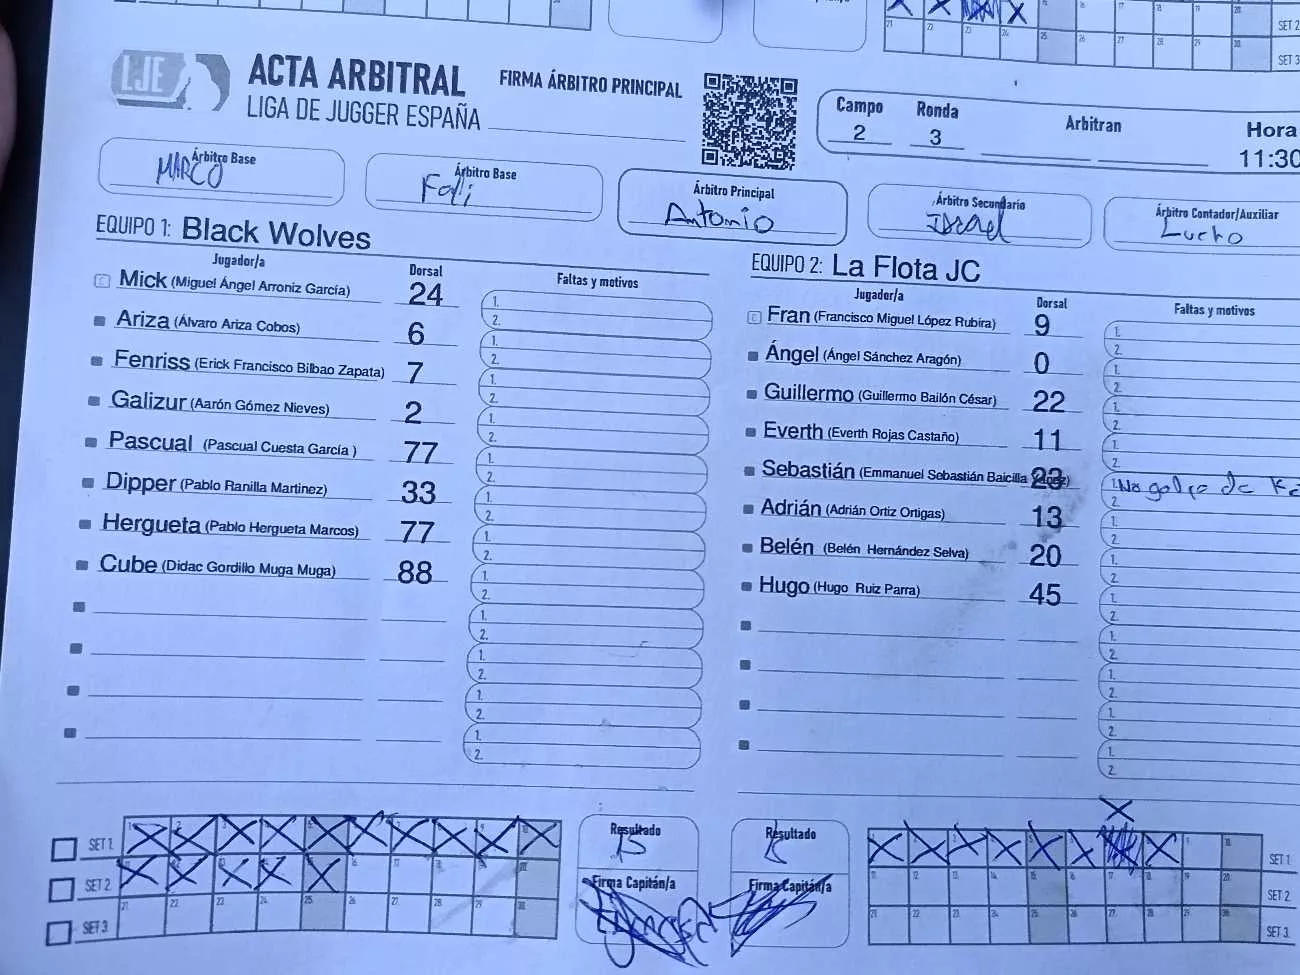 SET 2
SET 3
LJE
ACTA ARBITRAL
LIGA DE JUGGER ESPAÑA
FIRMA ÁRBITRO PRINCIPAL
Campo
2
Ronda
3
Arbitran
Hora
11:30
Árbitro Base
MARCO
Árbitro Base
Árbitro Principal
Antonio
Árbitro Secundario
Israel
Árbitro Contador/Auxiliar
Lucho
EQUIPO 1: Black Wolves
Jugador/a Dorsal Faltas y motivos
Mick (Miguel Ángel Arroniz García) 24
Ariza (Álvaro Ariza Cobos) 6
Fenriss (Erick Francisco Bilbao Zapata) 7
Galizur (Aarón Gómez Nieves) 2
Pascual (Pascual Cuesta García ) 77
Dipper (Pablo Ranilla Martinez) 33
Hergueta (Pablo Hergueta Marcos) 77
Cube (Didac Gordillo Muga Muga) 88
EQUIPO 2: La Flota JC
Jugador/a Dorsal Faltas y motivos
Fran (Francisco Miguel López Rubira) 9
Ángel (Ángel Sánchez Aragón) 0
Guillermo (Guillermo Bailón César) 22
Everth (Everth Rojas Castaño) 11
Sebastián (Emmanuel Sebastián Baicilla 23
Adrián (Adrián Ortiz Ortigas) 13
Belén (Belén Hernández Selva) 20
Hugo (Hugo Ruiz Parra) 45
SET 1
SET 2
SET 3
Resultado
15
Firma Capitán/a
Resultado
Firma Capitán/a
SET 1
SET 2
SET 3